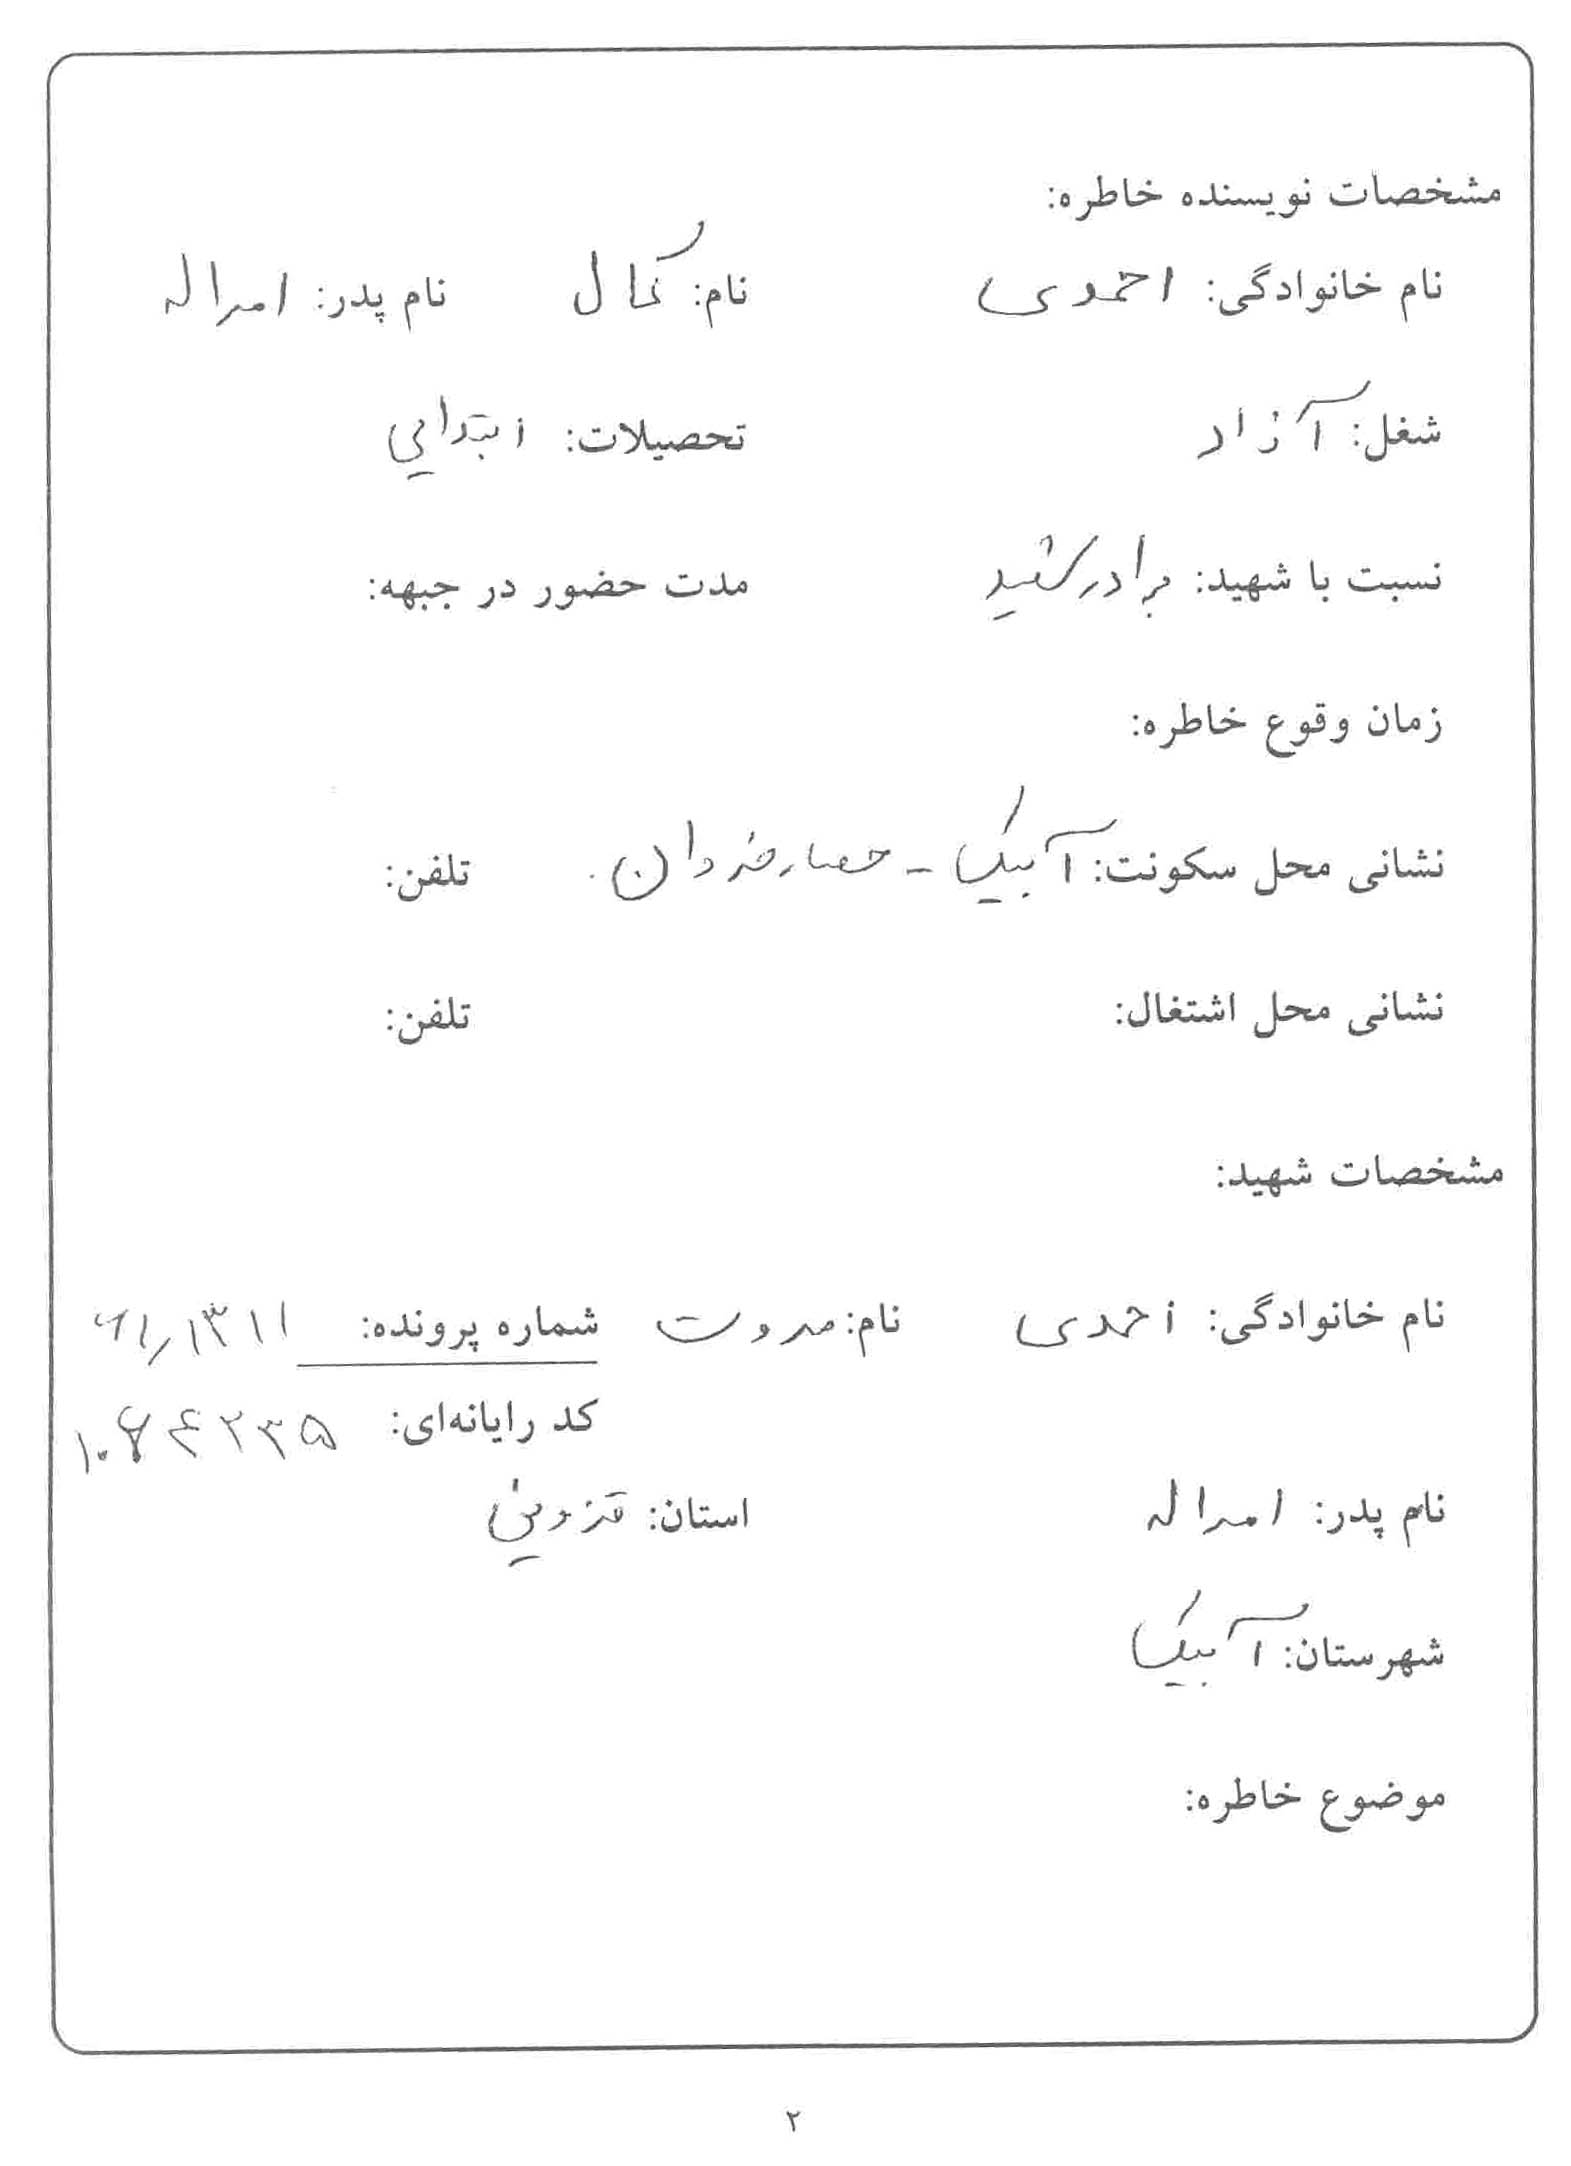 مشخصات نویسنده خاطره:
نام خانوادگی: احمدی نام: کمال نام پدر: امراله
شغل: آزاد تحصیلات: ابتدایی
نسبت با شهید: برادر شهید مدت حضور در جبهه:
زمان وقوع خاطره:
نشانی محل سکونت: آبیک - حصار خروان تلفن:
نشانی محل اشتغال: تلفن:
مشخصات شهید:
نام خانوادگی: احمدی نام: مروت شماره پرونده: ۶۱٫۱۳۱۱
کد رایانه‌ای: ۱۰۶۴۲۳۵
نام پدر: امراله استان: قزوین
شهرستان: آبیک
موضوع خاطره:
۲